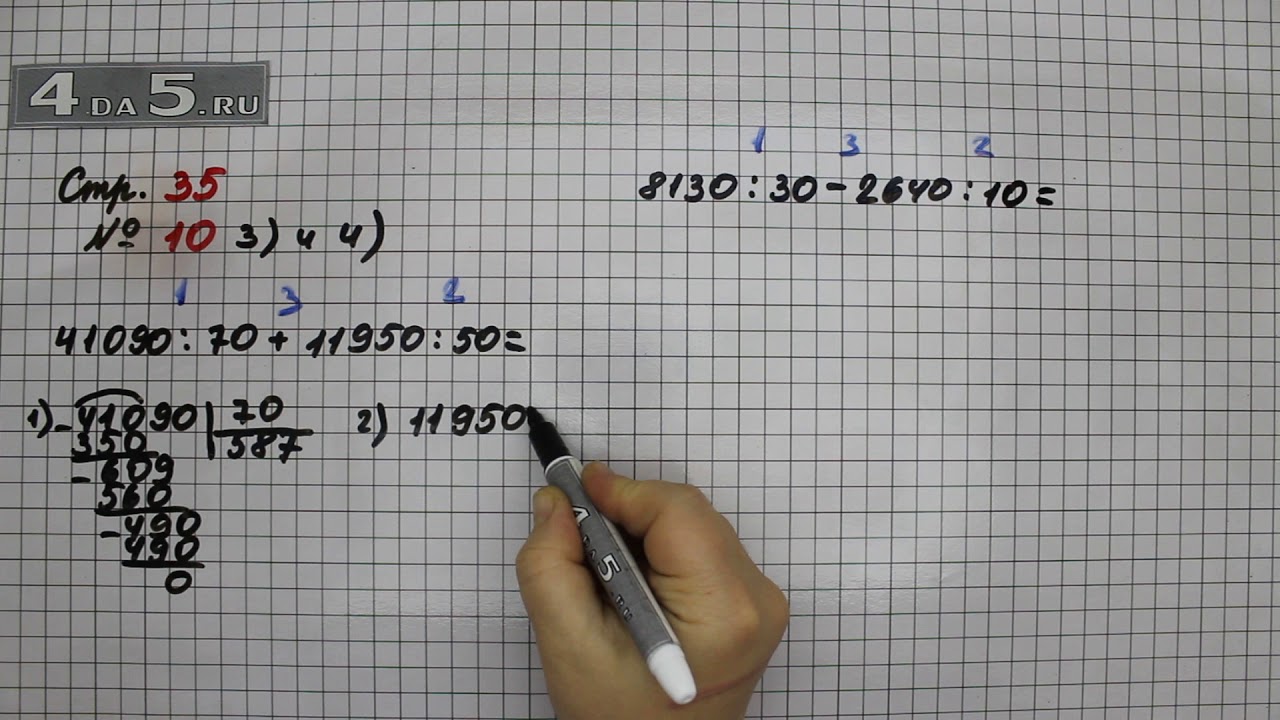 4DA5.RU
Стр. 35
№ 10 3) и 4)
1 3 2
41090 : 70 + 11950 : 50 =
1) - 41090 | 70
350 587
- 609
560
- 490
490
0
2) 11950
1 3 2
8130 : 30 - 2640 : 10 =
4DA5.RU